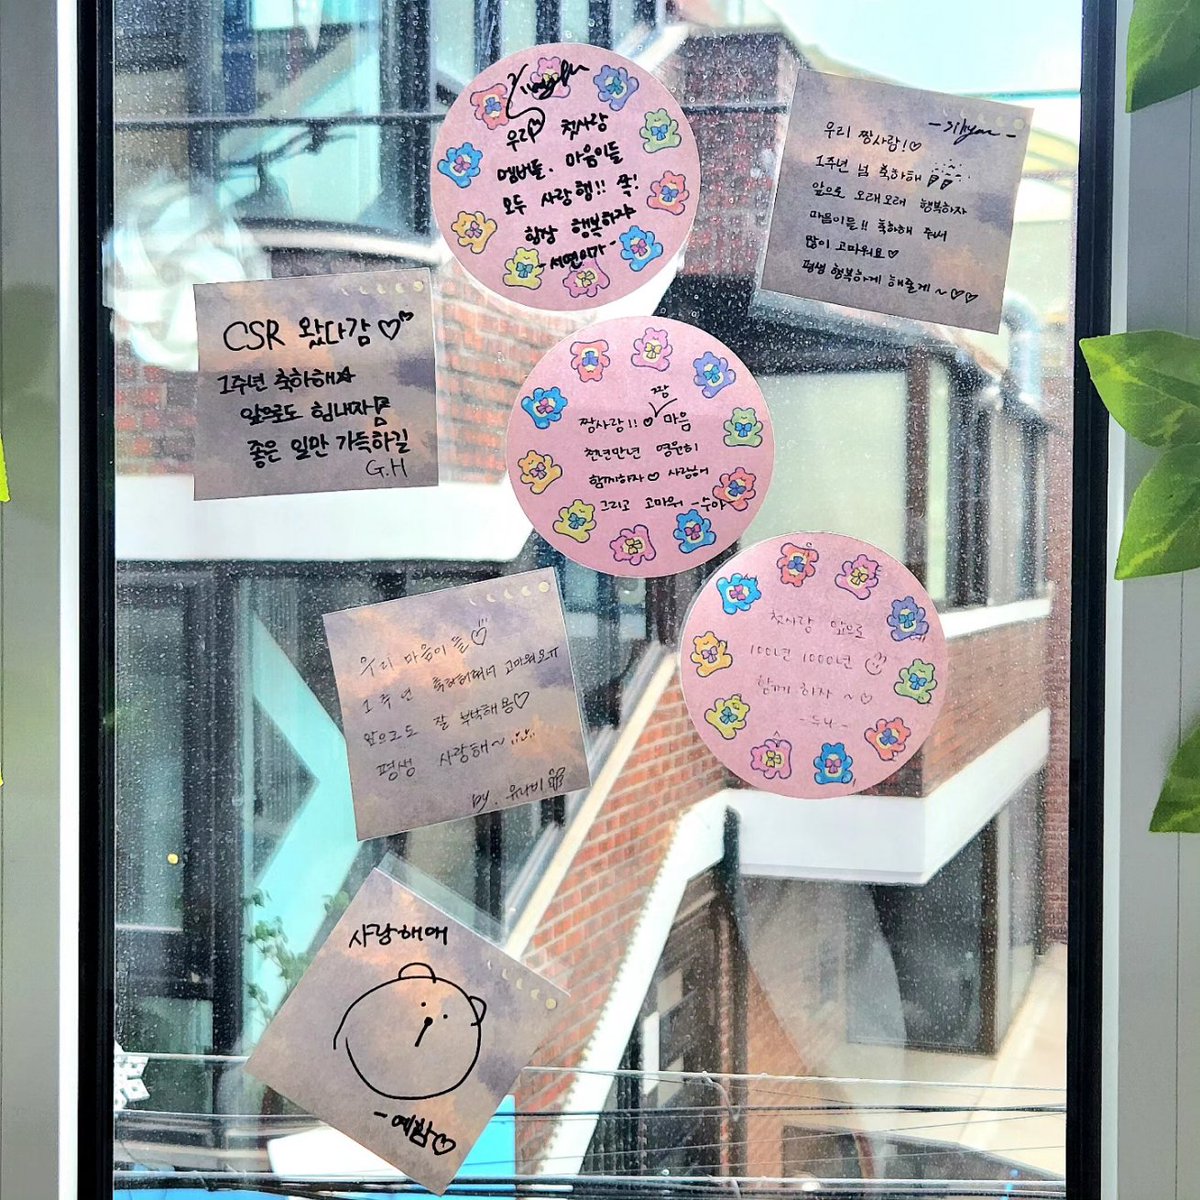 우리 첫사랑
멤버들. 마음이들
모두 사랑행!! 쭉!
항장 행복하쟈
-서연이가-
-시현-
우리 짱사랑!♡
1주년 넘 축하해
앞으로 오래오래 행복하자
마음이들!! 축하해 줘서
많이 고마워요♡
평생 행복하게 해줄게~♡♡
CSR 왔다감♡
1주년 축하해☆
앞으로도 힘내자
좋은 일만 가득하길
G.H
짱
짱사랑!!♡ 마음
천년만년 영원히
함께하자♡ 사랑해
그리고 고마워 -수아
우리 마음이들♡
1주년 축하해줘서 고마워요ㅠ
앞으로도 잘 부탁해용♡
평생 사랑해~
by. 유나비
첫사랑 앞으로
100년 1000년
함께 하자~♡
-두나-
사랑해애
-예함♡